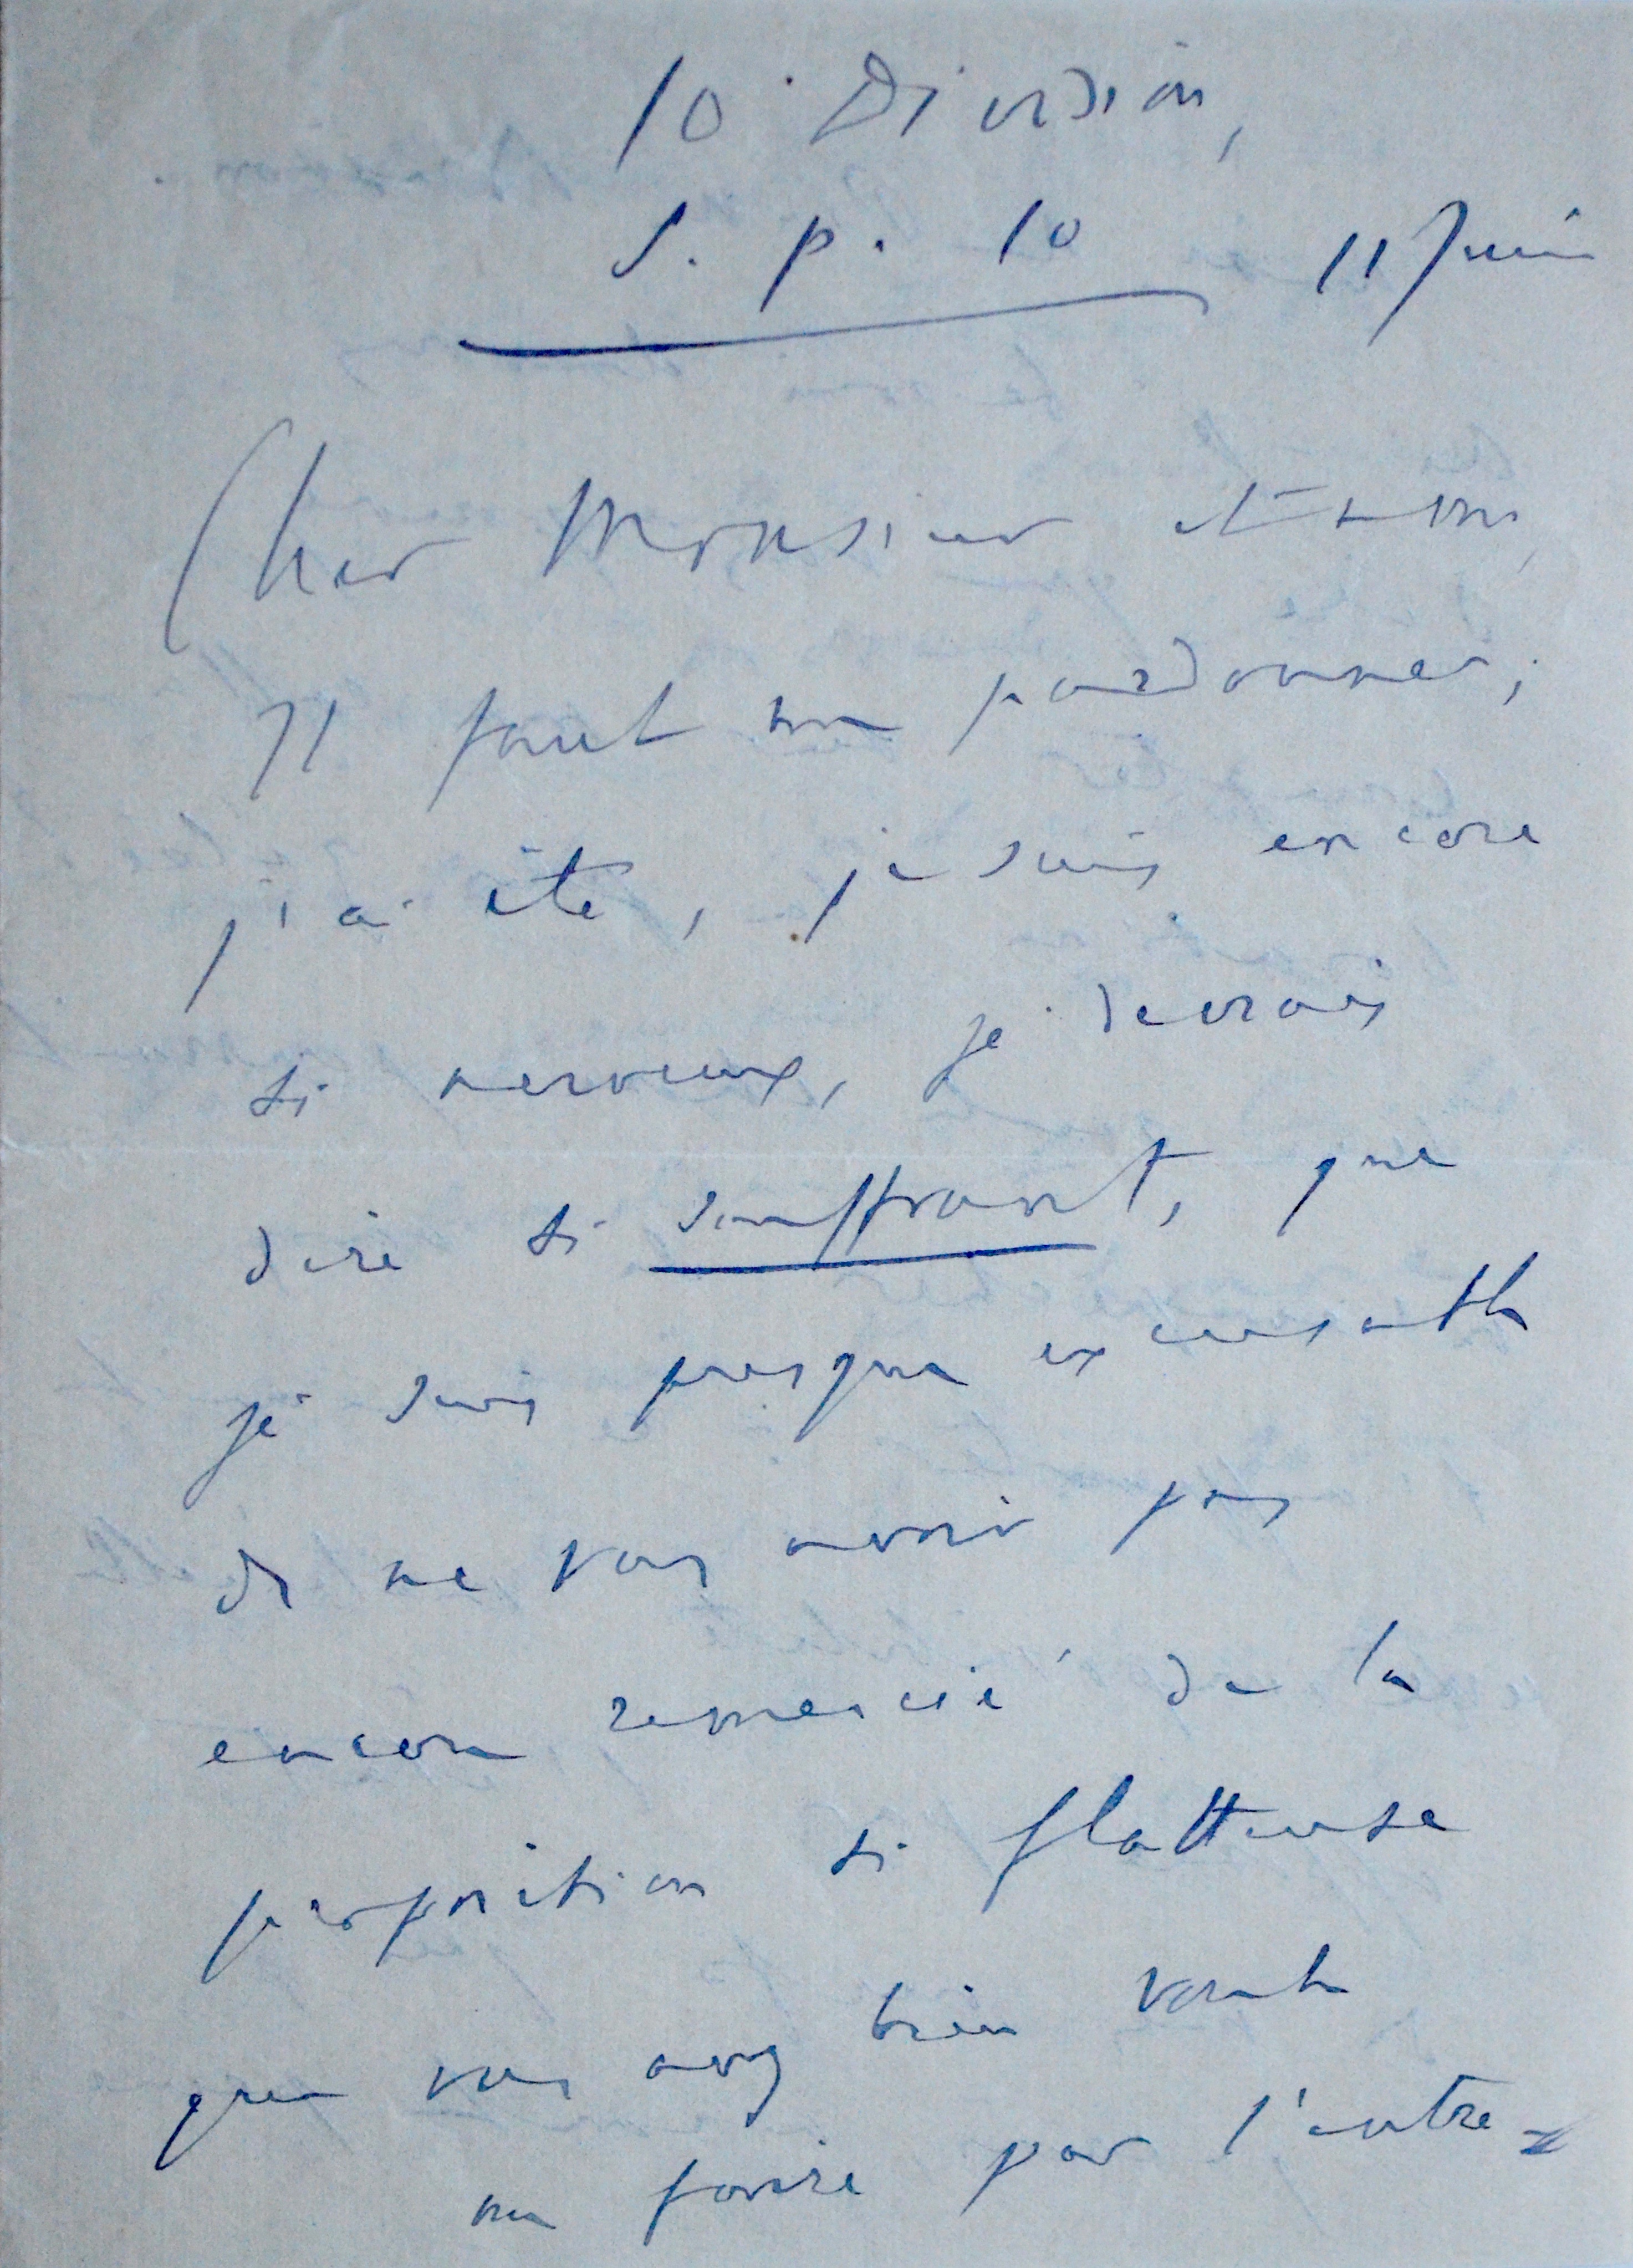 10e Division,
S. p. 10 11 Juin
Cher Monsieur et ami,
Il faut me pardonner;
j'ai été, je suis encore
si nerveux, je devrais
dire si souffrant, que
je suis presque excusable
de ne vous avoir pas
encore remercié de la
proposition si flatteuse
que vous avez bien voulu
me faire par l'entre=